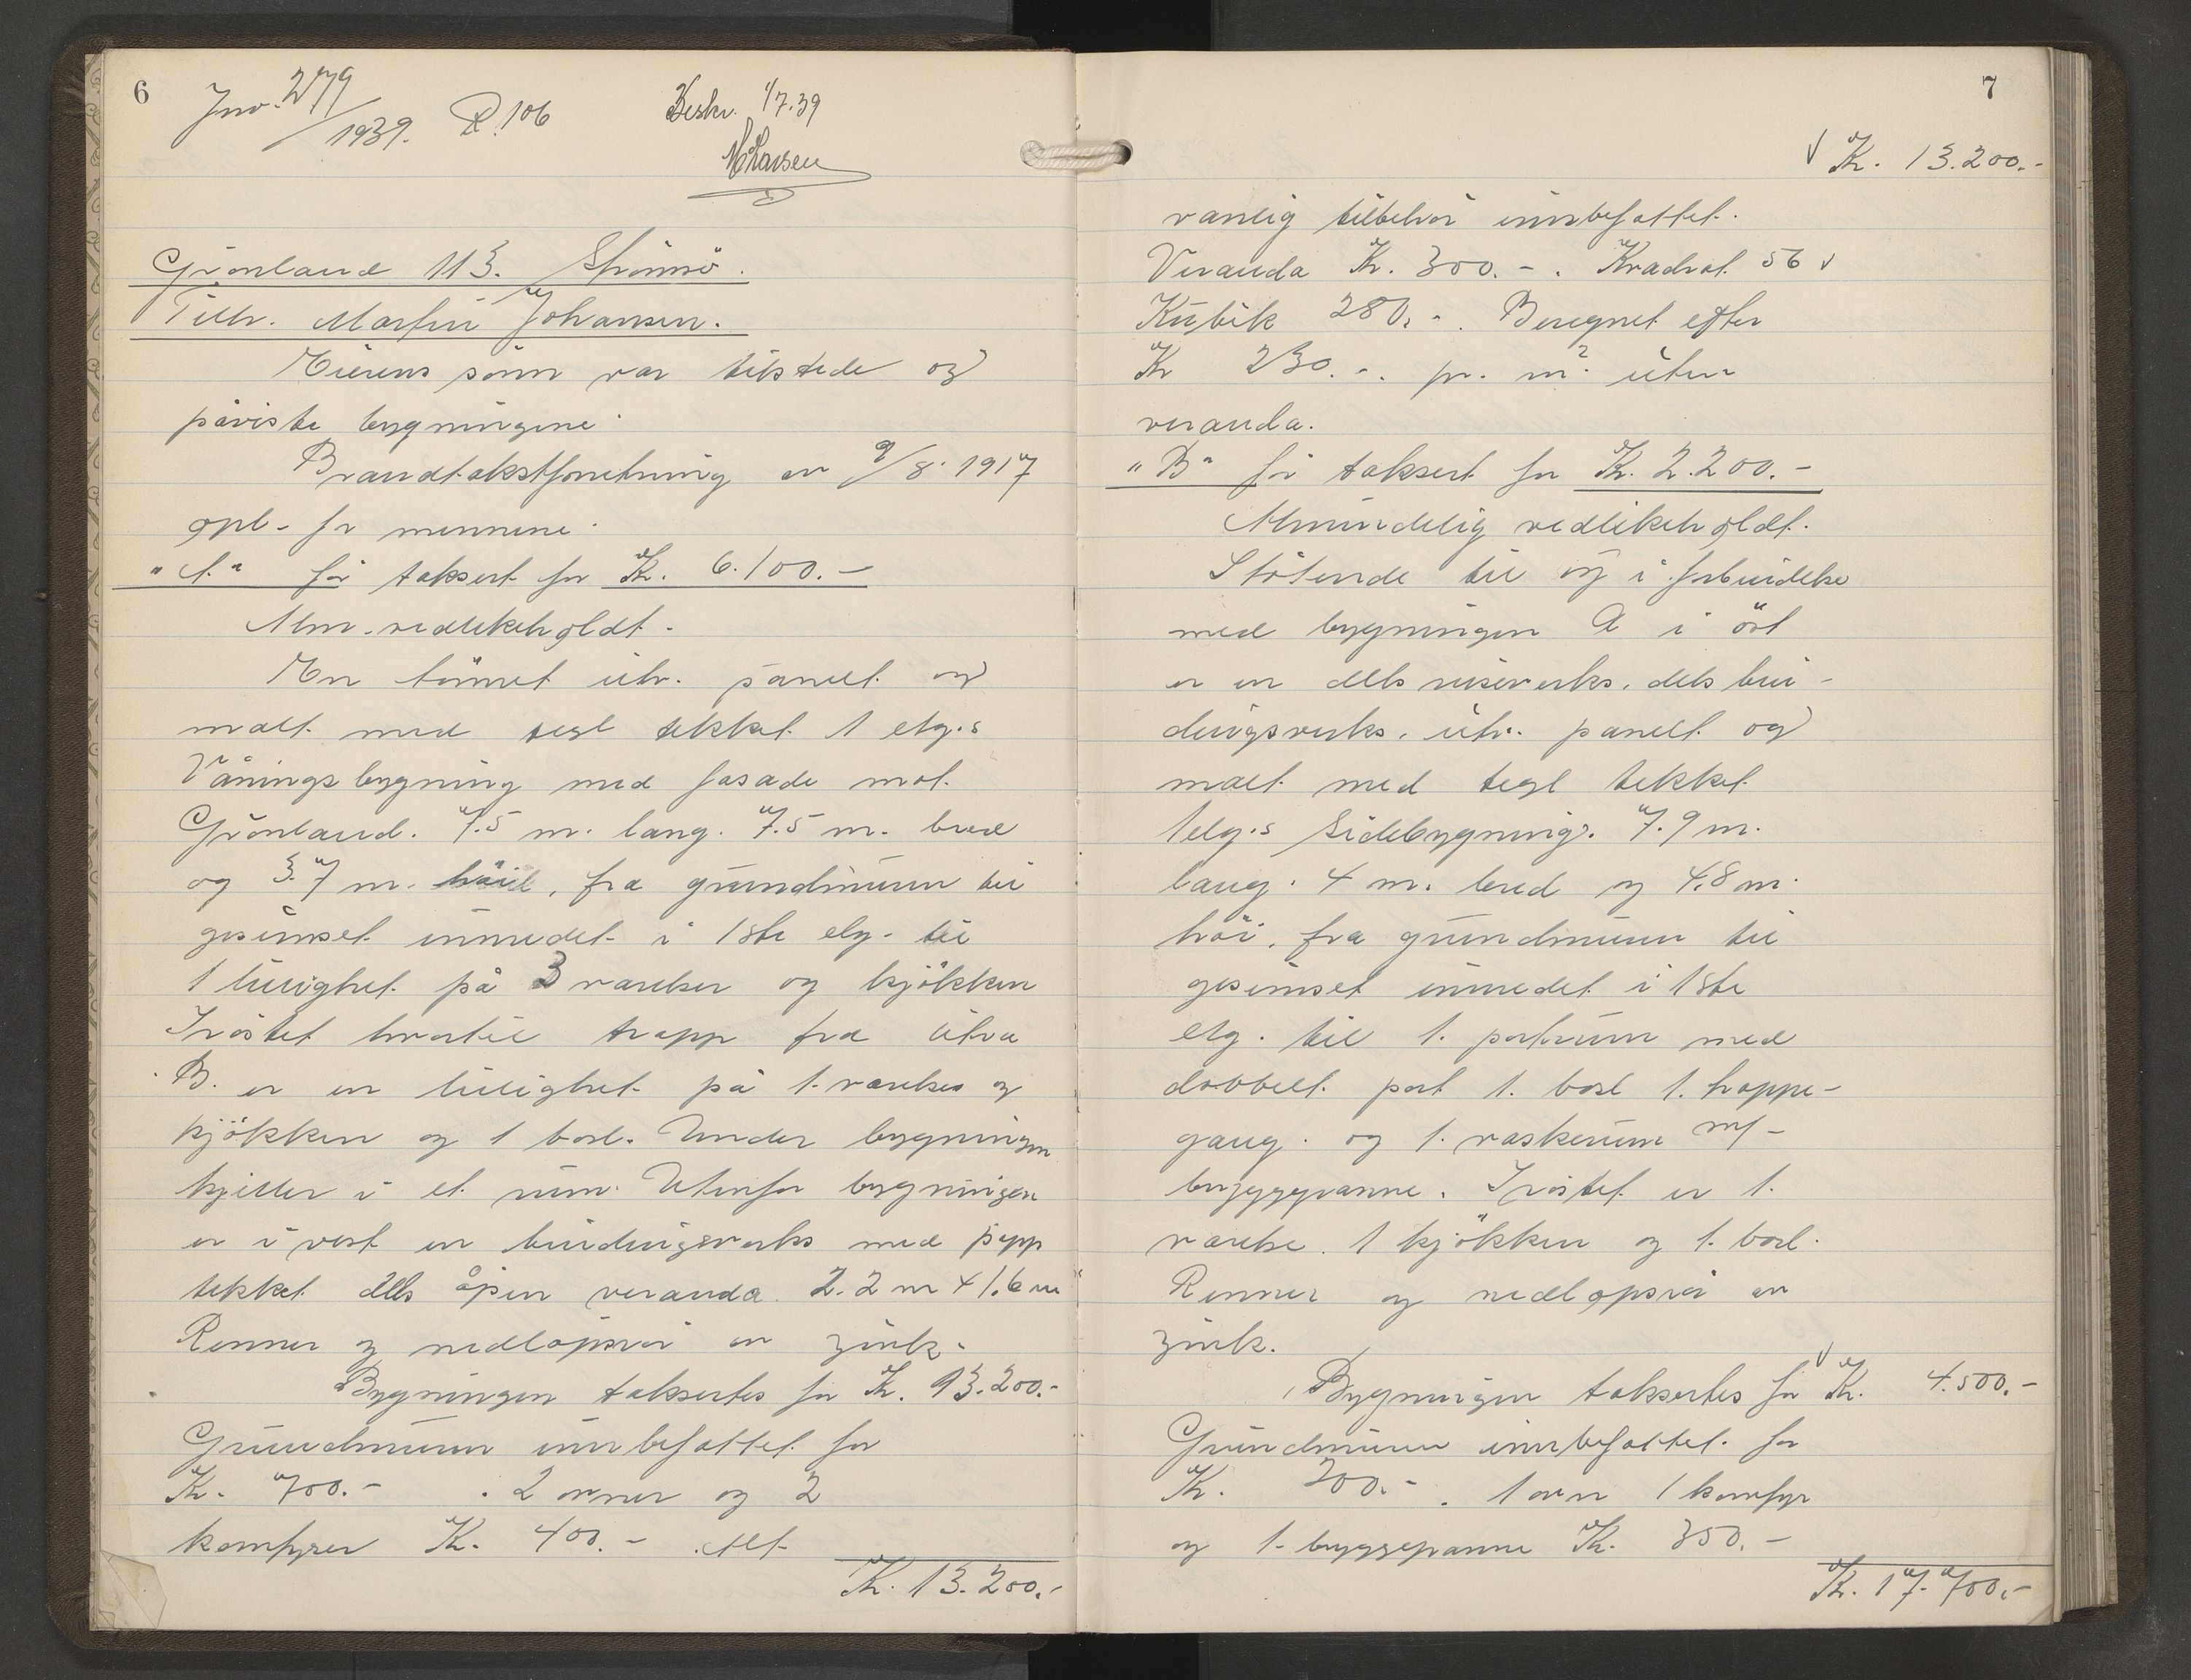 6
Jno. 279/1939. R. 106
Beskr. 1/7.39
NLarsen
Grönland 113. Strömsö.
Tilh. Martin Johansen.
Eierens sönn var tilstede og
påviste bygningene.
Brandtakstforretning av 9/8. 1917
opl. for mennene.
"A." för taksert for Kr. 6.100.-
Alm. vedlikeholdt.
En tömret utv. panelt og
malt med tegl tekket 1 etg.s
Våningsbygning med fasade mot
Grönland. 7.5 m. lang. 7.5 m. bred
og 3.7 m. höi, fra grundmuren til
gesimset innredet i 1ste etg. til
1 leilighet på 3 værelser og kjökken
Tröstet hvortil trapp fra litra
B. er en leilighet på 1. værelse og
kjökken og 1 bod. Under bygningen
kjeller i et rum. Utenfor bygningen
er i vest en bindingsverks med papp
tekket dels åpen veranda 2.2 m x 1.6 m
Renner og nedlöpsrör av zink.
Bygningen taksertes for Kr. 13.200.-
Grundmuren innbefattet for
Kr. 700.- . 2 ovner og 2
komfyrer Kr. 400.- Alt
Kr. 13.200.-
7
√ Kr. 13.200.-
vanlig tilbehör innbefattet.
Veranda Kr. 300.-. Kvadrat 56 √
Kubik 280.-. Beregnet efter
Kr 230.-. pr. m² uten
veranda.
"B" för taksert for Kr. 2.200.-
Almindelig vedlikeholdt.
Stötende til og i forbindelse
med bygningen A i öst
er en dels reisverks, dels bin-
dingsverks, utv. panelt og
malt med tegl tekket
1etg.s Sidebygning. 7.9 m.
lang. 4 m. bred og 4.8 m.
höi, fra grundmuren til
gesimset innredet i 1ste
etg. til 1. portrum med
dobbelt port 1. bod 1. trappe-
gang. og 1. vaskerum m/-
bryggepanne. Tröstet er 1.
værelse. 1 kjökken og 1. bod.
Renner og nedlöpsrör av
zink.
Bygningen taksertes for √ Kr. 4.500.-
Grundmuren innbefattet for
Kr. 200.-. 1 ovn 1 komfyr
og 1. bryggepanne Kr. 350.-
Kr. 17.700.-